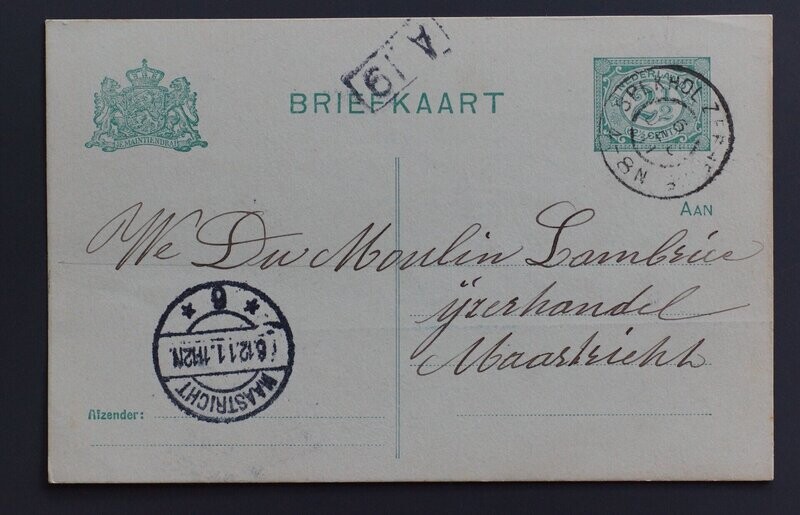 A. 19
BRIEFKAART
JE MAINTIENDRAI
NEDERLAND
2½
CENT
SPEKHOLZERHEIDE
N 8-
AAN
We Du Moulin Lambrice
ijzerhandel
Maastricht
6
6.12.11.1-12N.
MAASTRICHT
Afzender: